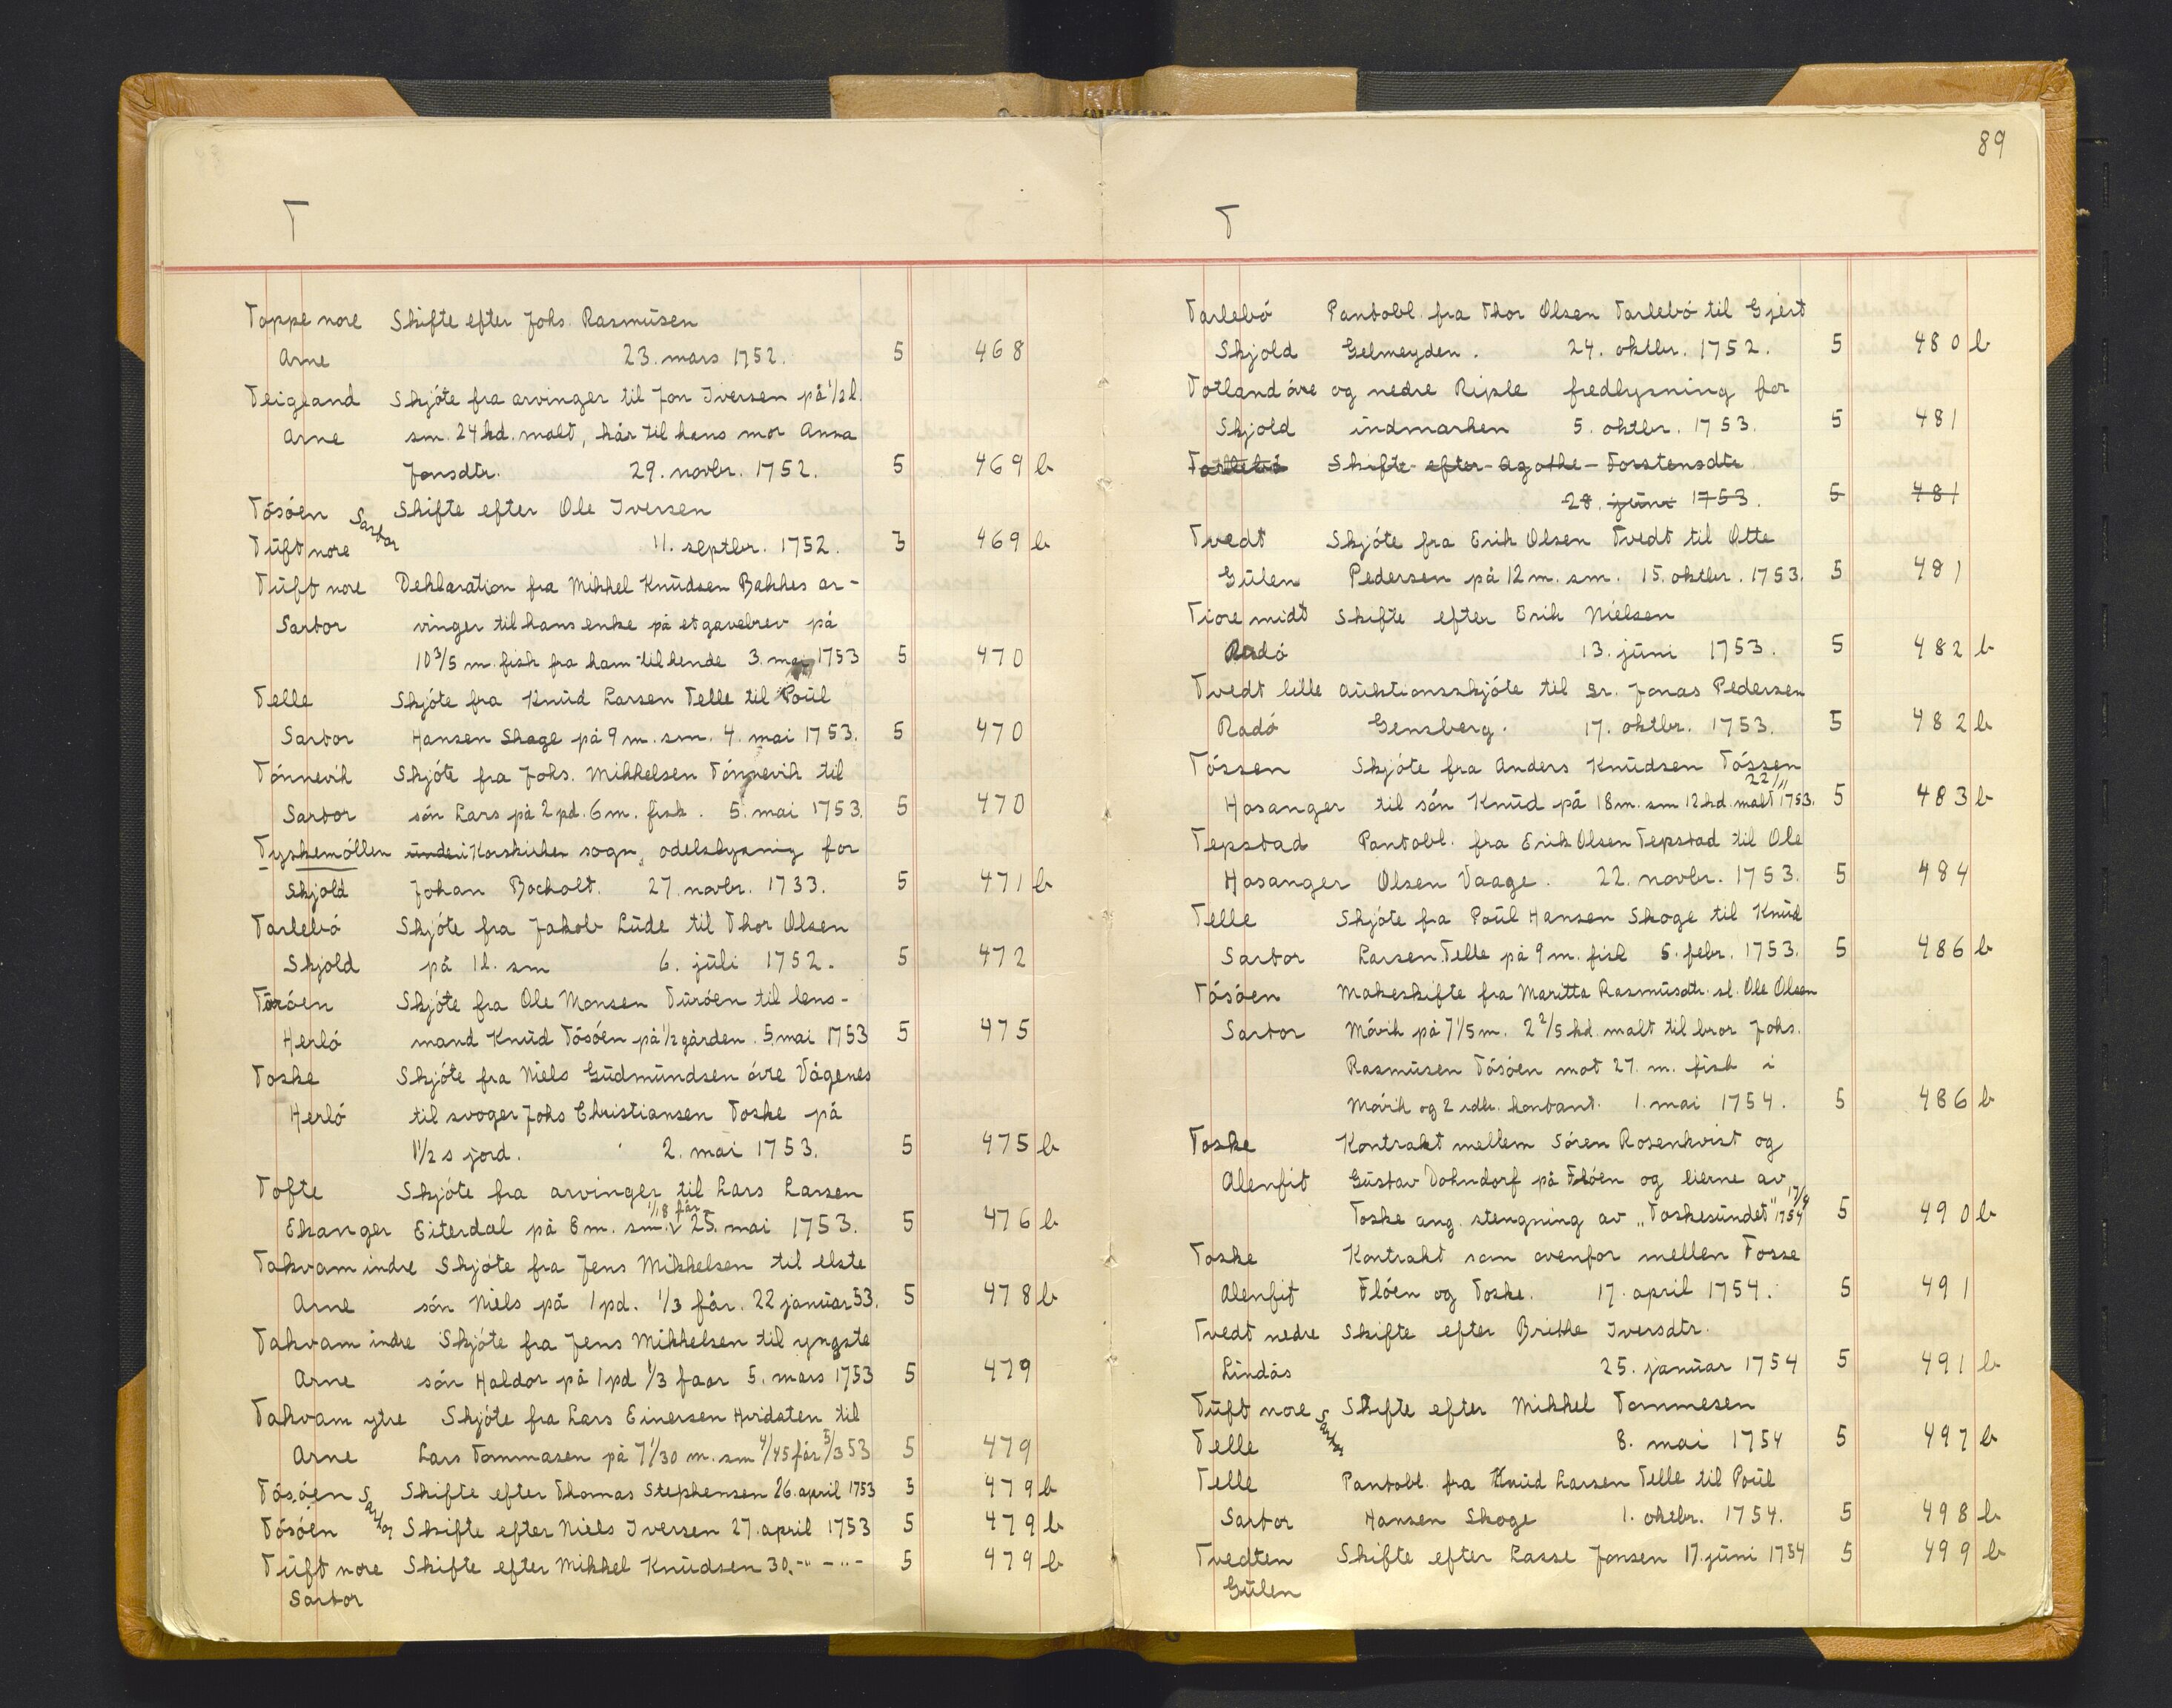 T
Toppe nore Skifte efter Johs. Rasmüsen
Arne 23. mars 1752. 5 468
Teigland Skjöte fra arvinger til Jon Iversen på 1/2 l.
Arne sm. 24 hd. malt, kår til hans mor Anna
Jonsdtr. 29. novbr. 1752. 5 469 b
Tösöen Sartor Skifte efter Ole Iversen
Tüft nore 11. septbr. 1752. 5 469 b
Tüft nore Deklaration fra Mikkel Knüdsen Bakkes ar-
Sartor vinger til hans enke på et gavebrev på
10 3/5 m. fisk fra ham til hende 3. mai 1753 5 470
Telle Skjöte fra Knüd Larsen Telle til Poül
Sartor Hansen Skoge på 9 m. sm. 4. mai 1753. 5 470
Tönnevik Skjöte fra Johs. Mikkelsen Tönnevik til
Sartor sön Lars på 2 pd. 6 m. fisk. 5. mai 1753. 5 470
Tyskemöllen ünder i Korskirken sogn, odelslysning for
Skjold Johan Bocholt. 27. novbr. 1733. 5 471 b
Tarlebö Skjöte fra Jakob Lüde til Thor Olsen
Skjold på 1 l. sm 6. jüli 1752. 5 472
Türöen Skjöte fra Ole Monsen Türöen til lens-
Herlö mand Knüd Tösöen på 1/2 gården. 5. mai 1753 5 475
Toske Skjöte fra Niels Güdmündsen övre Vågenes
Herlö til svoger Johs Christiansen Toske på
1 1/2 s jord. 2. mai 1753. 5 475 b
Tofte Skjöte fra arvinger til Lars Larsen
Ekanger Eiterdal på 6 m. sm. 1/18 får 25. mai 1753. 5 476 b
Takvam indre Skjöte fra Jens Mikkelsen til elste
Arne sön Niels på 1 pd. 1/3 får. 22 janüar 53. 5 478 b
Takvam indre Skjöte fra Jens Mikkelsen til yngste
Arne sön Haldor på 1 pd 1/3 faar 5. mars 1753 5 479
Takvam ytre Skjöte fra Lars Einersen Hvidsten til
Arne Lars Tommasen på 7 1/30 m. sm 4/45 får 5/3 53 5 479
Tösöen Sartor Skifte efter Thomas Stephensen 26. april 1753 5 479 b
Tösöen Skifte efter Niels Iversen 27. april 1753 5 479 b
Tüft nore Skifte efter Mikkel Knüdsen 30. -"- -"- 5 479 b
Sartor
89
T
Tarlebö Pantobl. fra Thor Olsen Tarlebö til Gjert
Skjold Gelmeyden. 24. oktbr. 1752. 5 480 b
Totland övre og nedre Riple fredlysning for
Skjold indmarken 5. oktbr. 1753. 5 481
Tarlebö Skifte efter Agathe Torstensdtr
28. jüni 1753. 5 481
Tvedt Skjöte fra Erik Olsen Tvedt til Otte
Gülen Pedersen på 12 m. sm. 15. oktbr. 1753. 5 481
Tiore midt Skifte efter Erik Nielsen
Radö 13. jüni 1753. 5 482 b
Tvedt lille Auktionsskjöte til Sr. Jonas Pedersen
Radö Gensberg. 17. oktbr. 1753. 5 482 b
Tössen Skjöte fra Anders Knüdsen Tössen
Hosanger til sön Knüd på 18 m. sm 12 hd. malt 22/11 1753. 5 483 b
Tepstad Pantobl. fra Erik Olsen Tepstad til Ole
Hosanger Olsen Vaage. 22. novbr. 1753. 5 484
Telle Skjöte fra Poül Hansen Skoge til Knüd
Sartor Larsen Telle på 9 m. fisk 5. febr. 1753. 5 486 b
Tösöen Makeskifte fra Maritta Rasmüsdtr. sl. Ole Olsen
Sartor Mövik på 7 1/5 m. 2 2/5 hd. malt til bror Johs.
Rasmüsen Tösöen mot 27. m. fisk i
Mövik og 2 rdlr. kontant. 1. mai 1754. 5 486 b
Toske Kontrakt mellem Sören Rosenkvist og
Alenfit Güstav Dohndorf på Flöen og eierne av
Toske ang. stengning av "Toskesündet" 17/4 1754 5 490 b
Toske Kontrakt som ovenfor mellen Fosse
Alenfit Flöen og Toske. 17. april 1754. 5 491
Tvedt nedre Skifte efter Brithe Iversdtr.
Lindås 25. janüar 1754 5 491 b
Tüft nore Sartor Skifte efter Mikkel Tommesen
Telle 8. mai 1754 5 497 b
Telle Pantobl. fra Knüd Larsen Telle til Poül
Sartor Hansen Skoge 1. oktbr. 1754. 5 498 b
Tvedten Skifte efter Lasse Jonsen 17. jüni 1754 5 499 b
Gülen